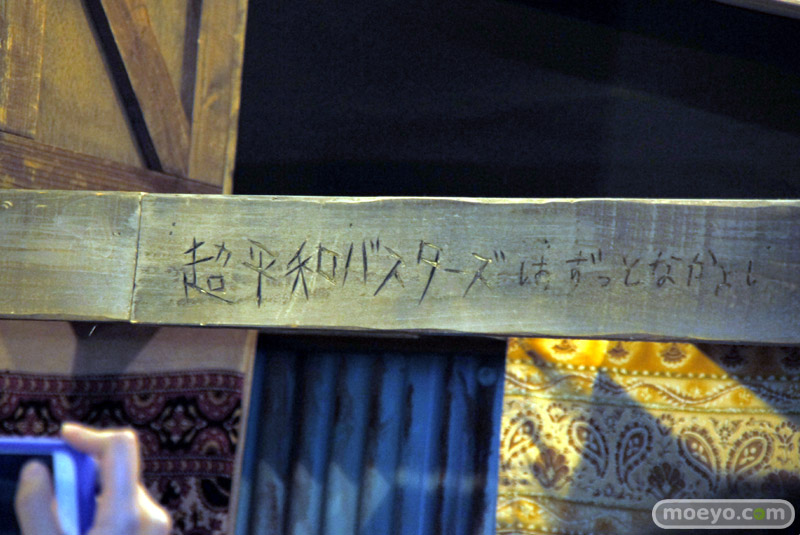 超平和バスターズはずっとなかよし
moeyo.com